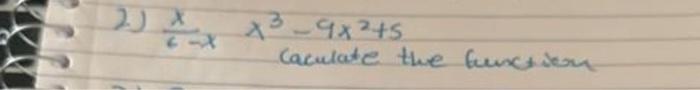 2) x/6-x x³-9x²+5
Caculate the function